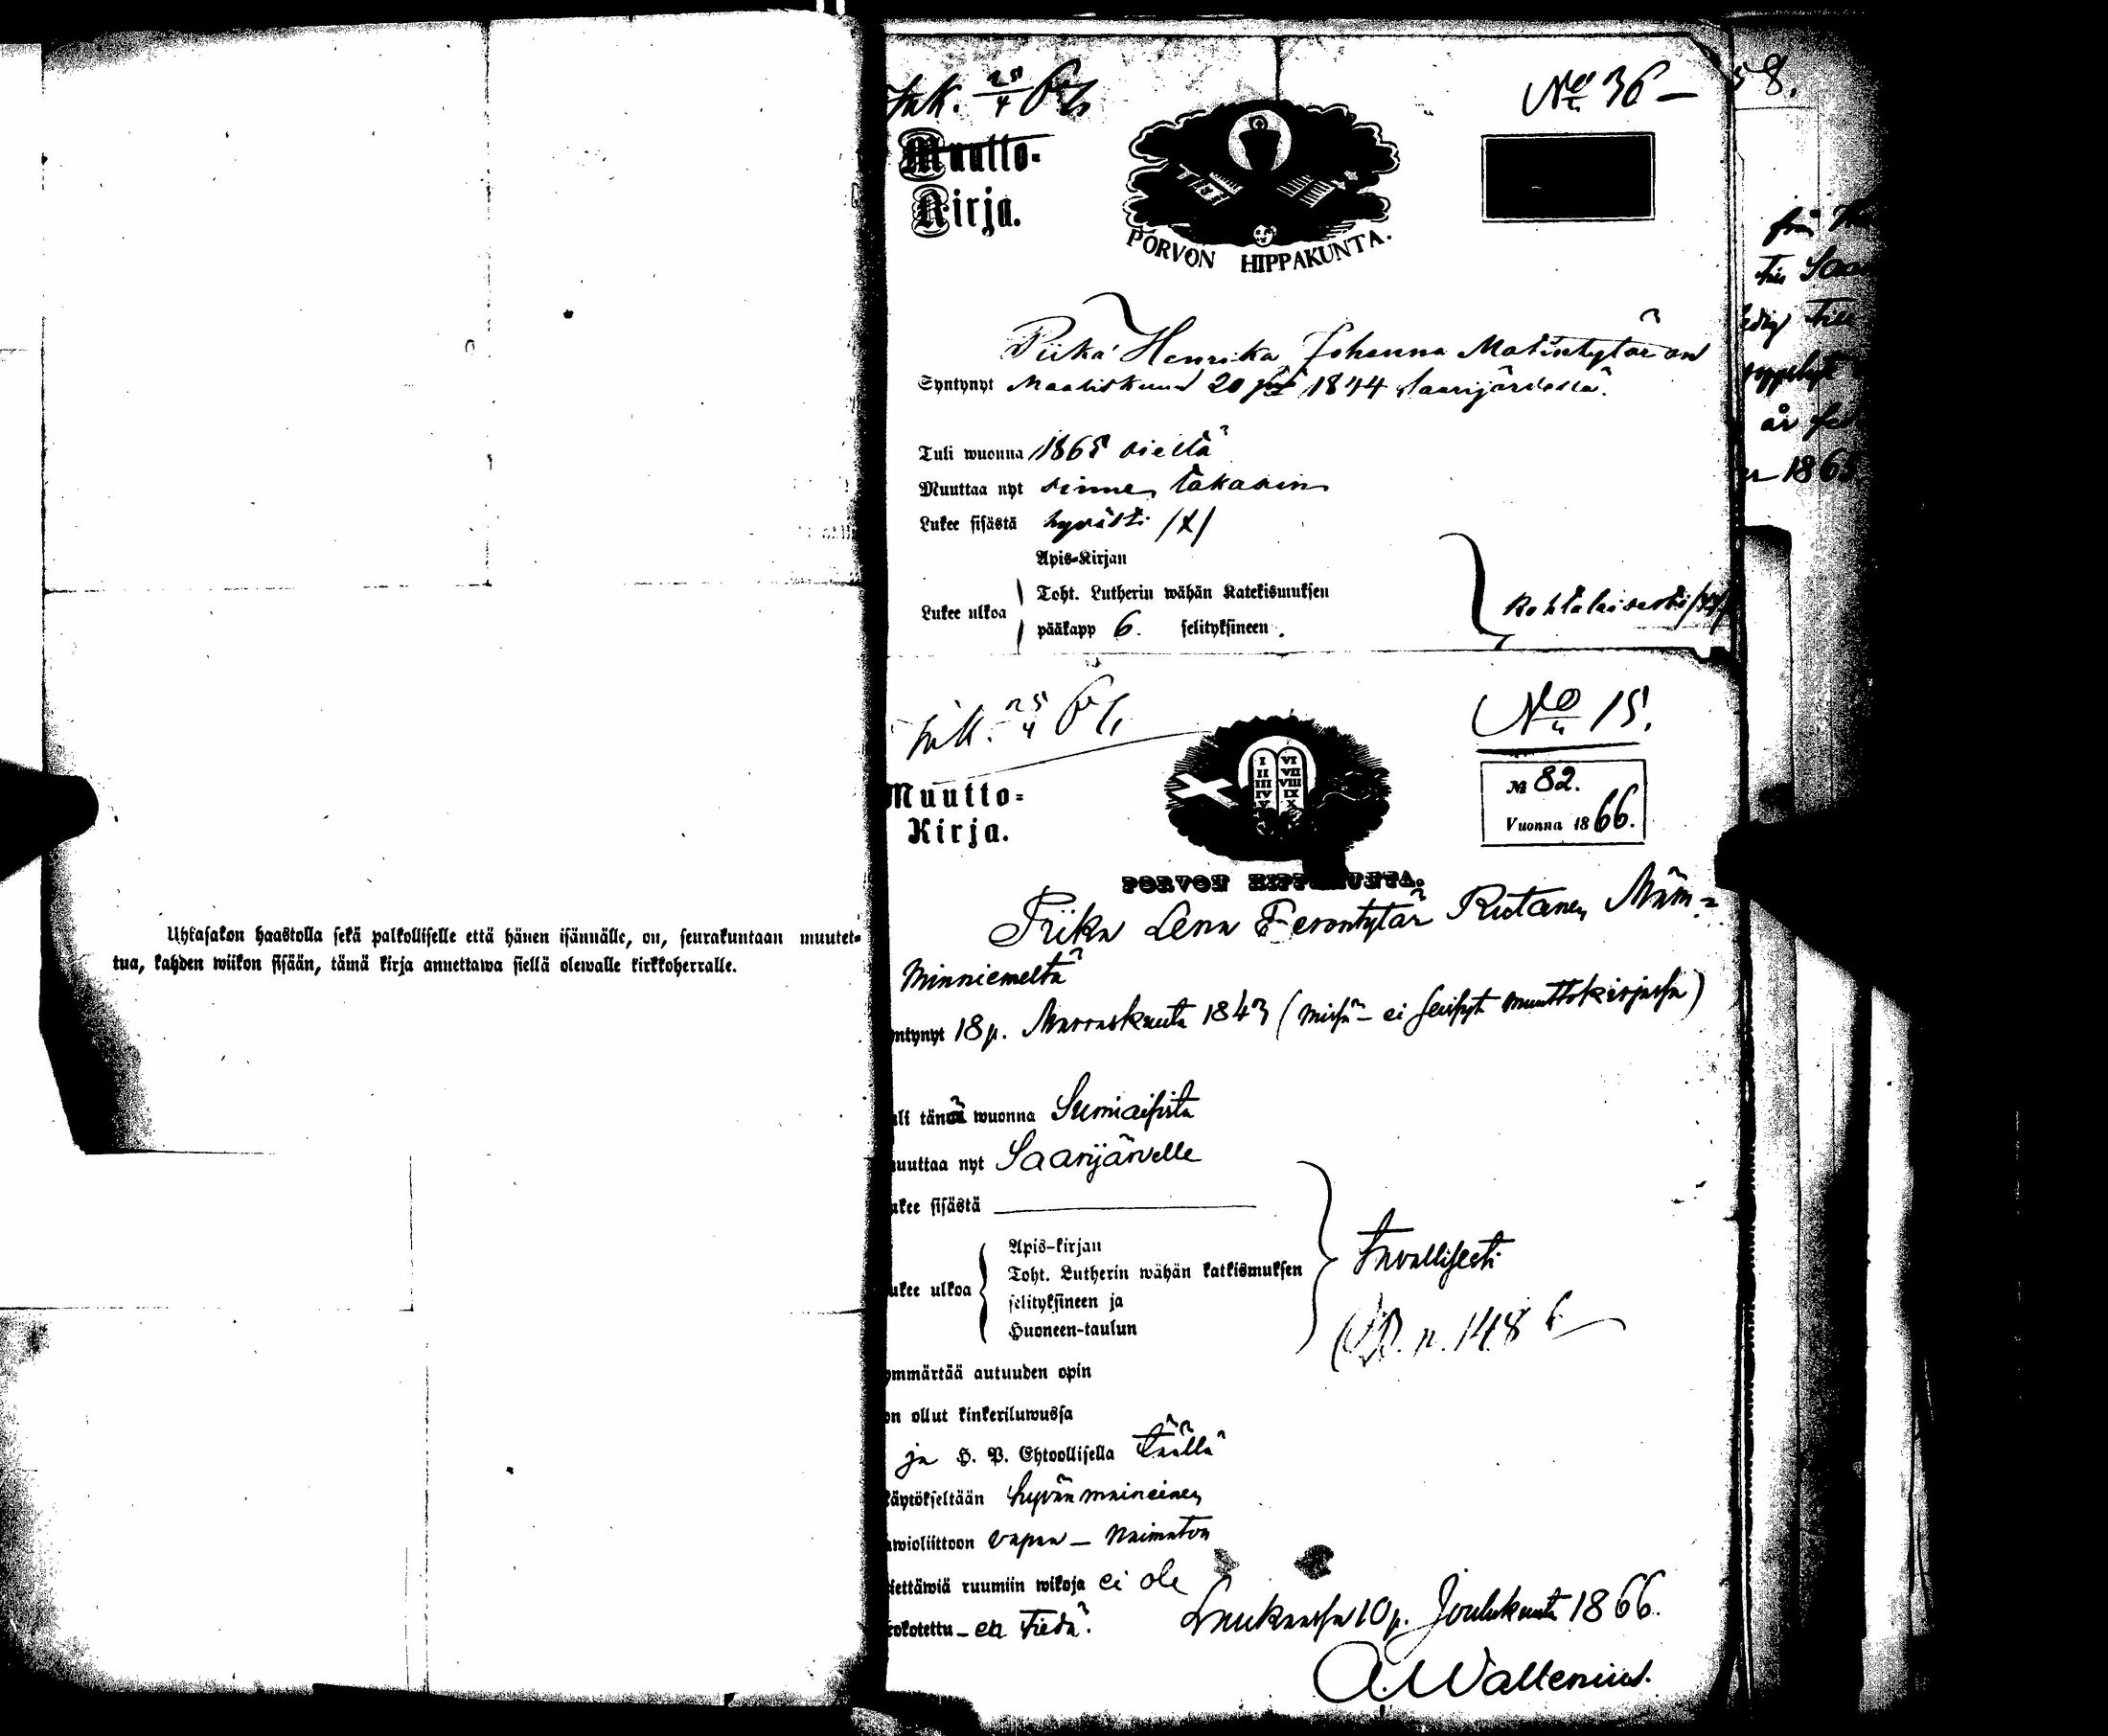 Uhkasakon haastolla sekä palkolliselle että hänen isännälle, on, seurakuntaan muutet=
tua, kahden wiikon sisään, tämä kirja annettawa siellä olewalle kirkkoherralle.
Ink. 25/4 67
No 36 —
Muutto-
Kirja.
PORVON HIPPAKUNTA.
Piika Henrika Johanna Matintytär on
Syntynyt Maaliskuun 20 1844 Saarijärvellä.
Tuli wuonna 1865 sieltä
Muuttaa nyt sinne takasin
Lukee sisästä hyvästi /X/
Apis-Kirjan
Toht. Lutherin wähän Katekismuksen
Lukee ulkoa
pääkapp 6. selityksineen.
kohtalaisesti
Ink. 25/4 67
No 15.
Muutto=
Kirja.
I II III IV V VI VII VIII IX X
№ 82.
Vuonna 1866.
PORVON HIPPAKUNTA.
Piika Lena Eerontytär Rutanen Näm=
minniemeltä
ntynyt 18 p. Marraskuuta 1843 (missä – ei seisyt muuttokirjassa)
uli tänä wuonna Sumiaisista
uuttaa nyt Saarijärvelle
ukee sisästä
Apis-kirjan
Toht. Lutherin wähän katkismuksen
ukee ulkoa
selityksineen ja
Huoneen-taulun
tavallisesti
p. 148
ymmärtää autuuden opin
on ollut kinkeriluwussa
ja H. P. Ehtoollisella täällä
äytökseltään hyvänmaineinen
wioliittoon vapaa – Naimaton
iettäwiä ruumiin wikoja ei ole
rokotettu – en tiedä.
Laukaassa 10 p. Joulukuuta 1866.
A. Waltenius.
58.
från
Saa
år
1865